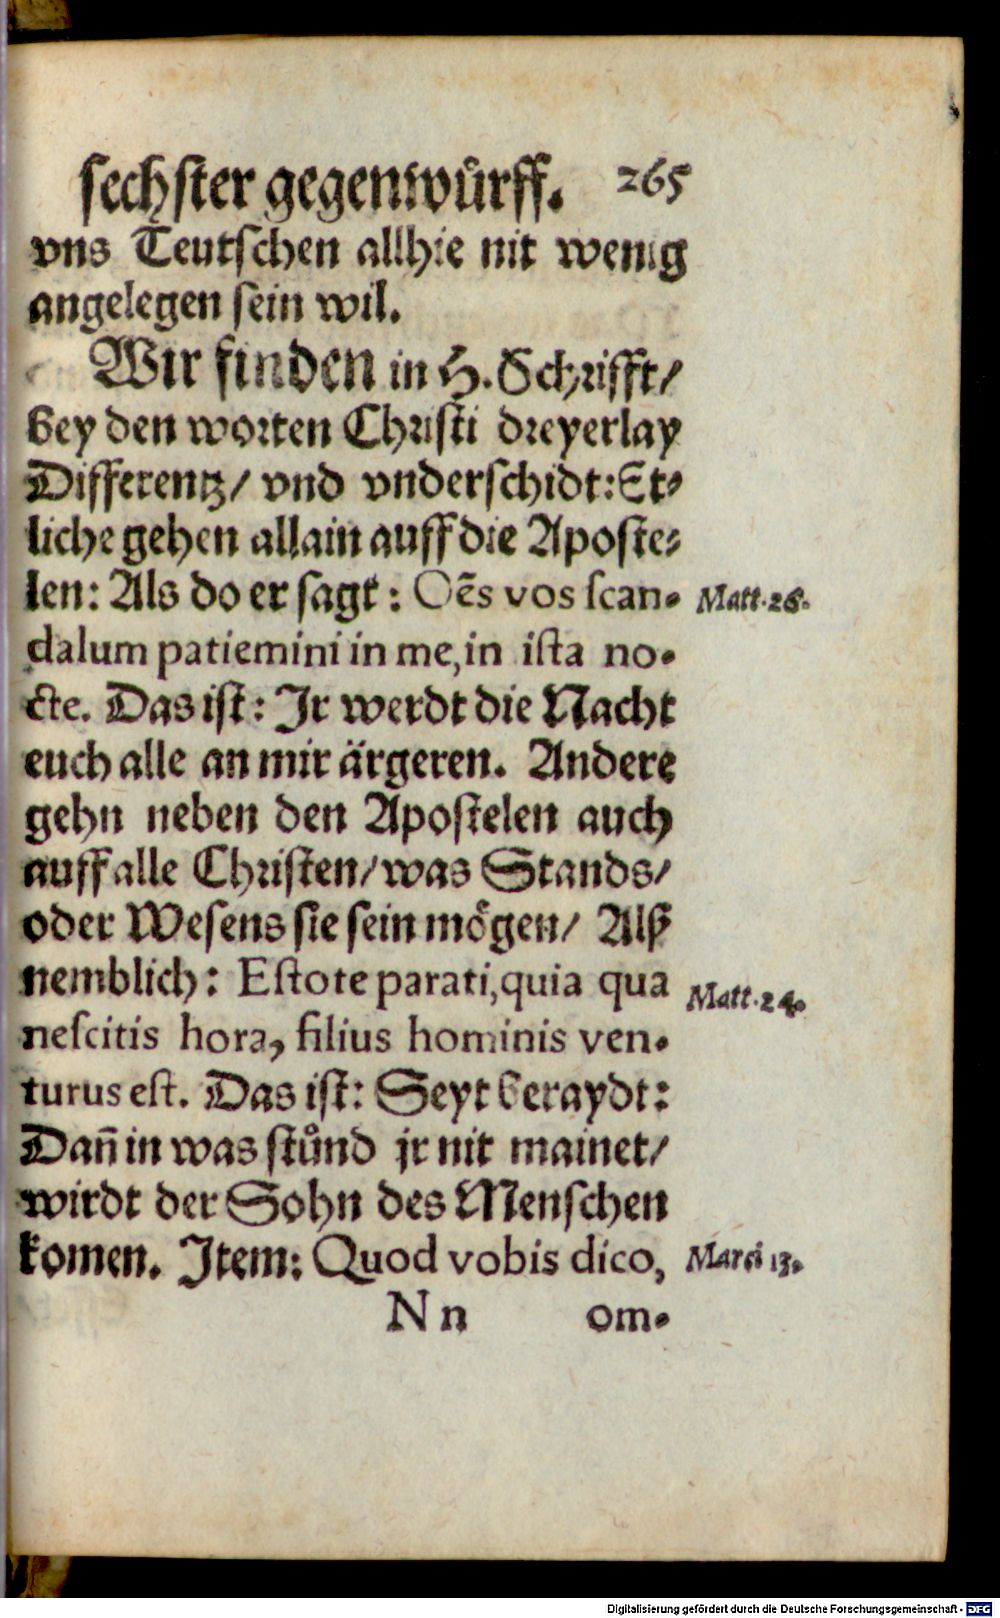 sechster gegenwuͤrff. 265
vns Teutschen allhie nit wenig
angelegen sein wil.
Wir finden in H. Schrifft/
bey den worten Christi dreyerlay
Differentz/ vnd vnderschidt: Et-
liche gehen allain auff die Aposte-
len: Als do er sagt: Oēs vos scan-
Matt. 26.
dalum patiemini in me, in ista no-
cte. Das ist: Jr werdt die Nacht
euch alle an mir ärgeren. Andere
gehn neben den Apostelen auch
auff alle Christen/ was Stands/
oder Wesens sie sein moͤgen/ Alß
nemblich: Estote parati, quia qua
Matt. 24.
nescitis hora, filius hominis ven-
turus est. Das ist: Seyt beraydt:
Dañ in was stuͦnd jr nit mainet/
wirdt der Sohn des Menschen
komen. Jtem: Quod vobis dico,
Marci 13.
N n om-
Digitalisierung gefördert durch die Deutsche Forschungsgemeinschaft - DFG